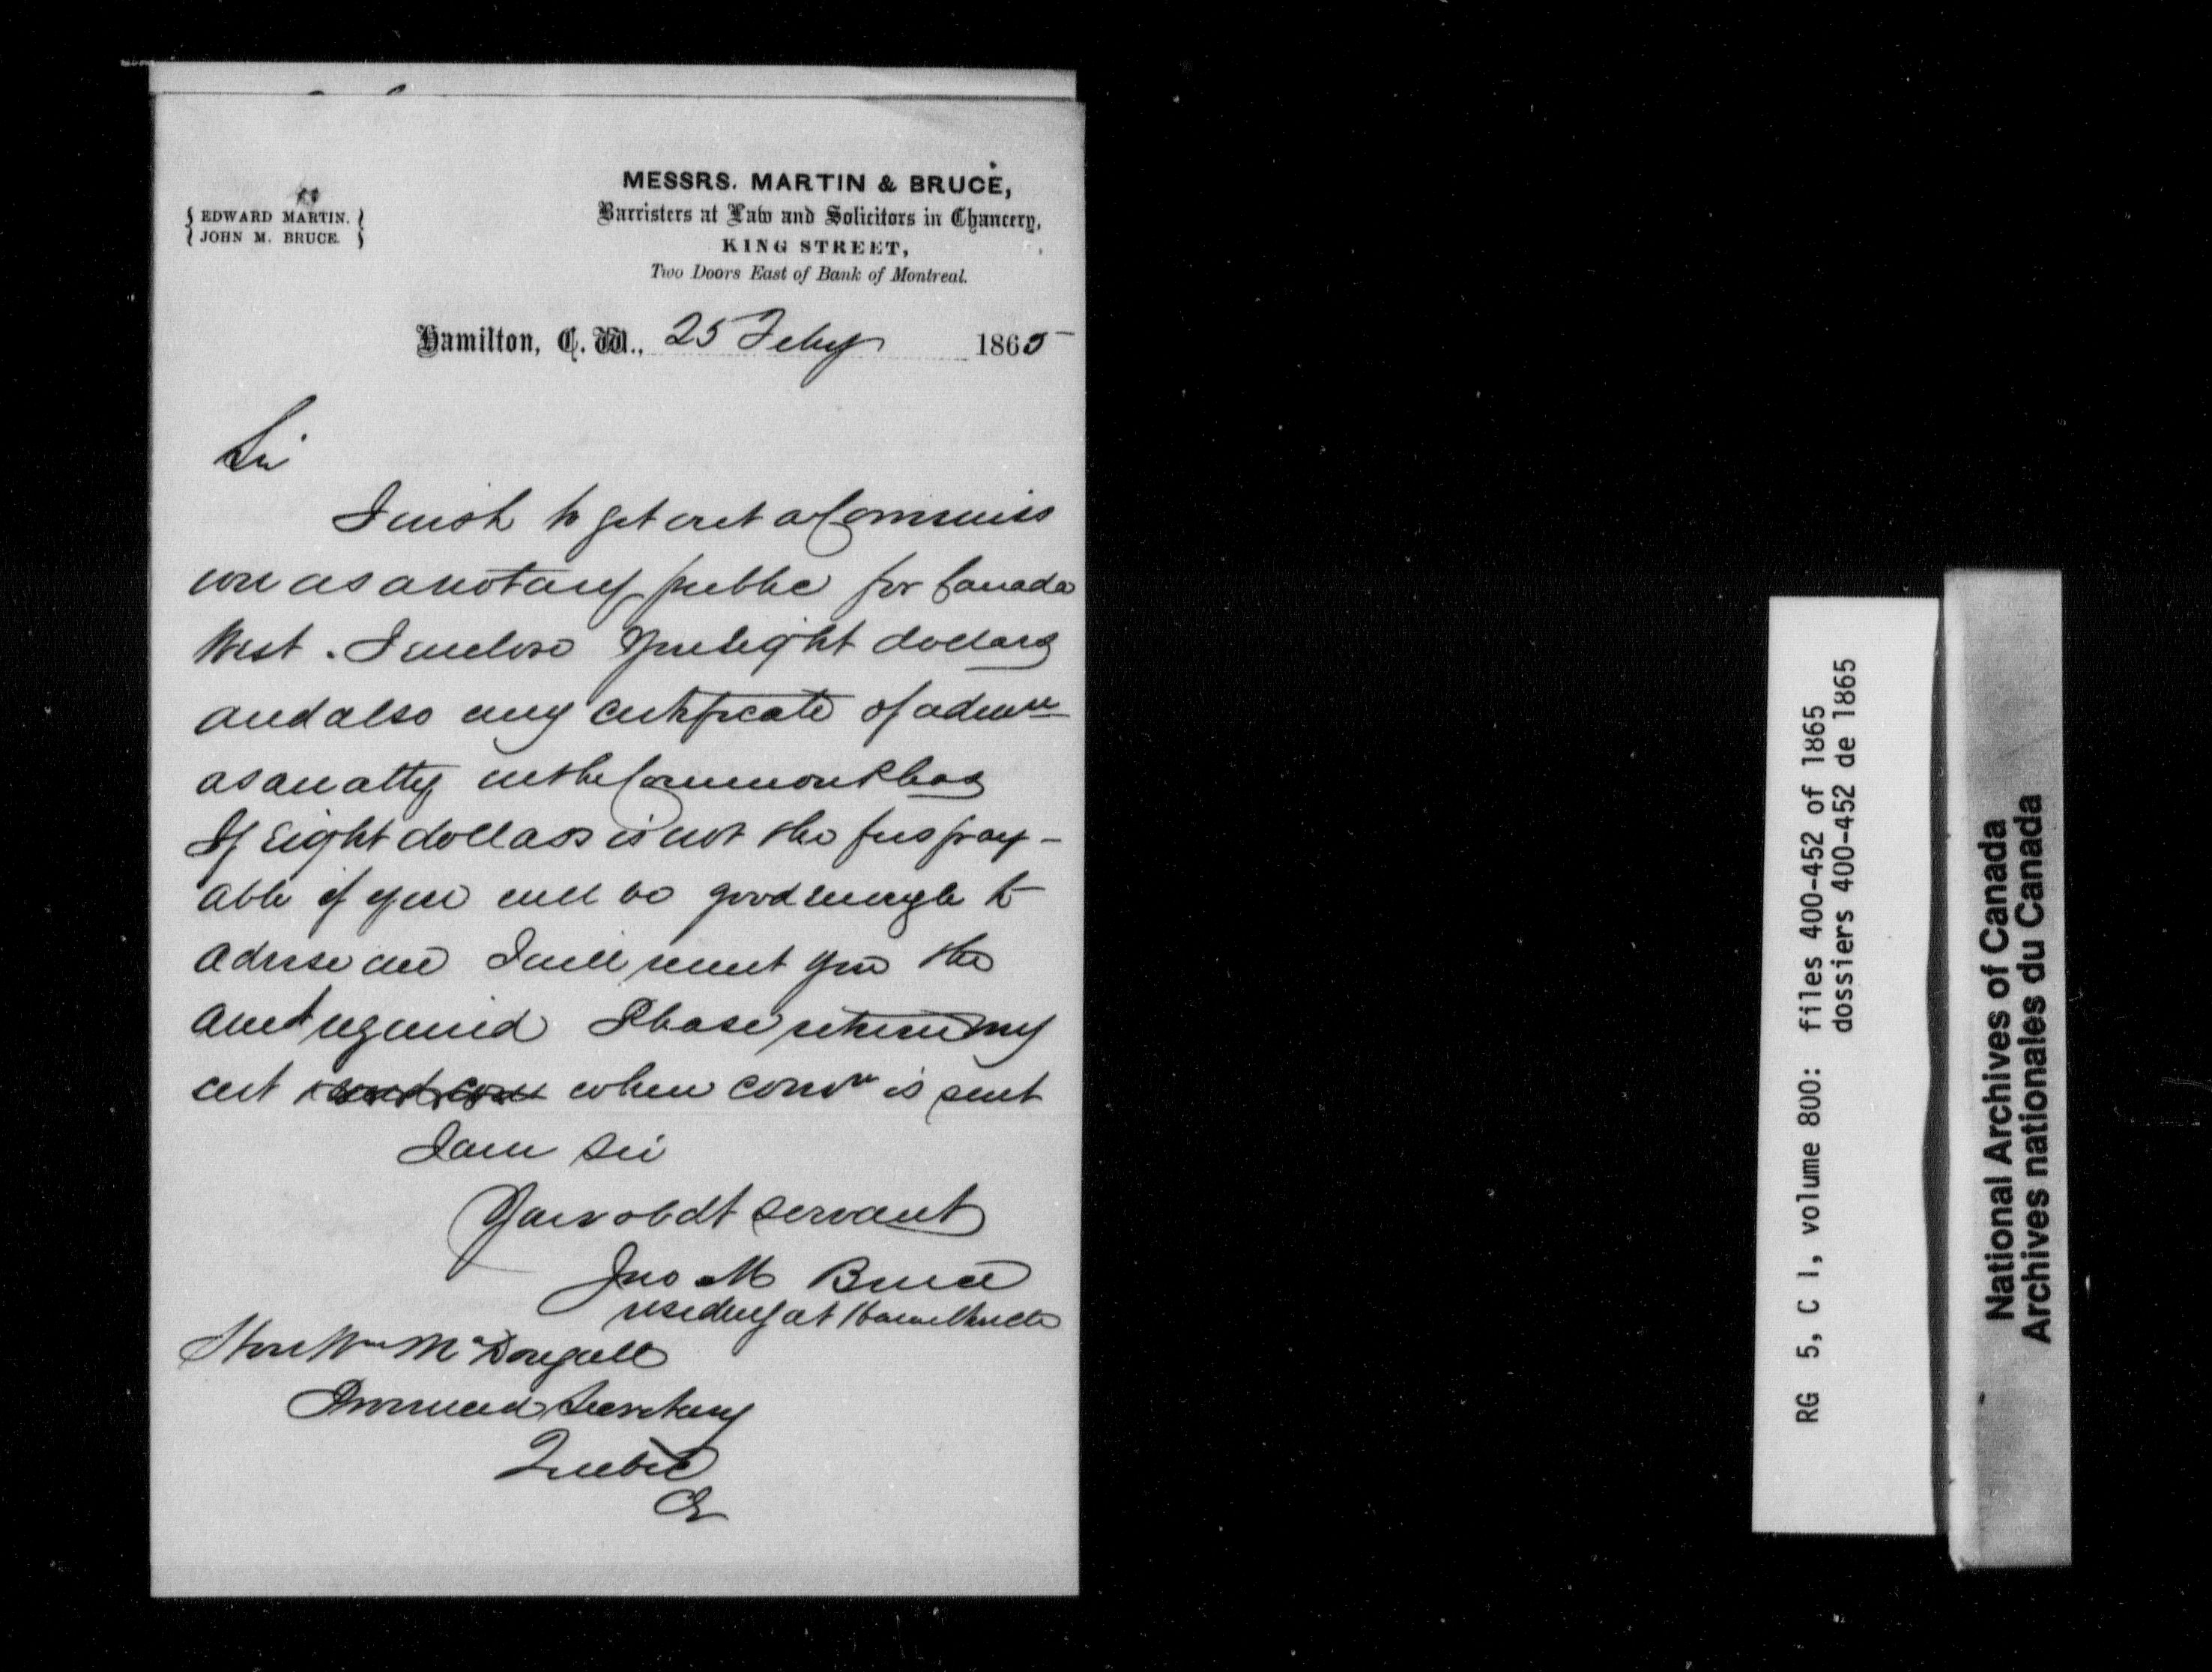 { EDWARD MARTIN. }
{ JOHN M. BRUCE. }
MESSRS. MARTIN & BRUCE,
Barristers at Law and Solicitors in Chancery,
KING STREET,
Two Doors East of Bank of Montreal.
Hamilton, C. W., 25 Feby 1865
Sir
I wish to get out a Commiss
ion as a notary public for Canada
West. I enclose you eight dollars
and also my certificate of admn
as an atty in the Common Pleas
If Eight dollars is not the fees pay-
able if you will be good enough to
advise me I will remit you the
amt required Please return my
cert when comn is sent
I am Sir
Your obdt servant
Jno M Bruce
residing at Hamilton
Hon Wm McDougall
Provincial Secretary
Quebec
RG 5, C 1, volume 800: files 400-452 of 1865
dossiers 400-452 de 1865
National Archives of Canada
Archives nationales du Canada